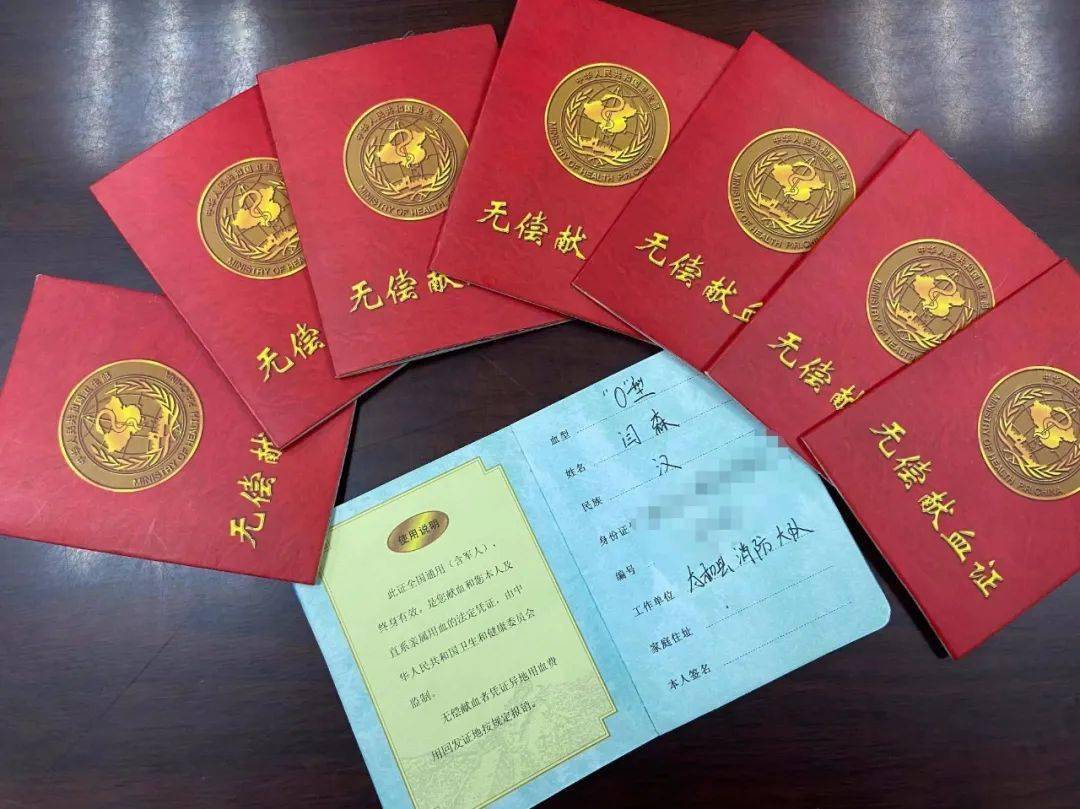 中华人民共和国卫生部
MINISTRY OF HEALTH P.R.CHINA
无偿献
中华人民共和国卫生部
MINISTRY OF HEALTH
无偿
中华人民共和国卫生部
MINISTRY OF HEALTH
无偿献
中华人民共和国卫生部
MINISTRY OF HEALTH P.R.CHINA
无偿献
中华人民共和国卫生部
MINISTRY OF HEALTH P.R.CHINA
无偿献血
中华人民共和国卫生部
MINISTRY OF HEALTH
无偿献
中华人民共和国卫生部
MINISTRY OF HEALTH P.R.CHINA
无偿献血证
使用说明
此证全国通用（含军人），
终身有效，是您献血和您本人及
直系亲属用血的法定凭证，由中
华人民共和国卫生和健康委员会
监制。
无偿献血者凭证异地用血费
用回发证地按规定报销。
血型 "O"型
姓名 闫森
民族 汉
身份证
编号
工作单位 太和县消防大队
家庭住址
本人签名